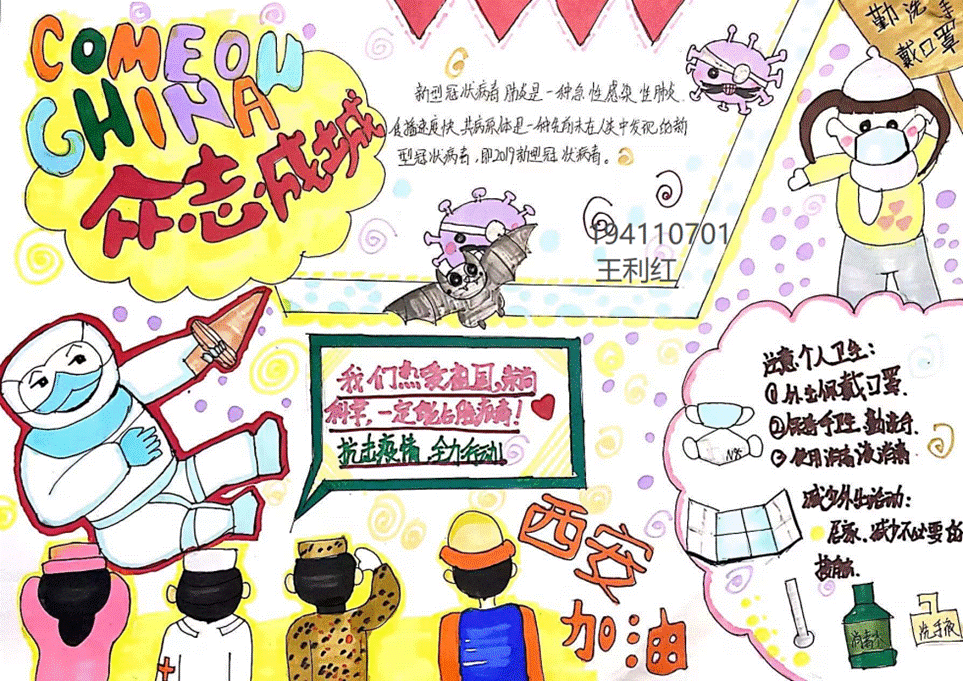 COME ON
CHINA
众志成城
新型冠状病毒肺炎是一种急性感染性肺炎.
传播速度快.其病原体是一种先前未在人类中发现的新
型冠状病毒,即2019新型冠状病毒。
194110701
王利红
勤洗手
戴口罩
我们热爱祖国,崇尚
科学,一定能占胜病病!
抗击疫情,全力行动
西安
加油
注意个人卫生:
①外出佩戴口罩.
②保持手卫生,勤洗手
③使用消毒液消毒
N95
减少外出活动:
居家、减少不必要的
接触.
消毒
洗手液